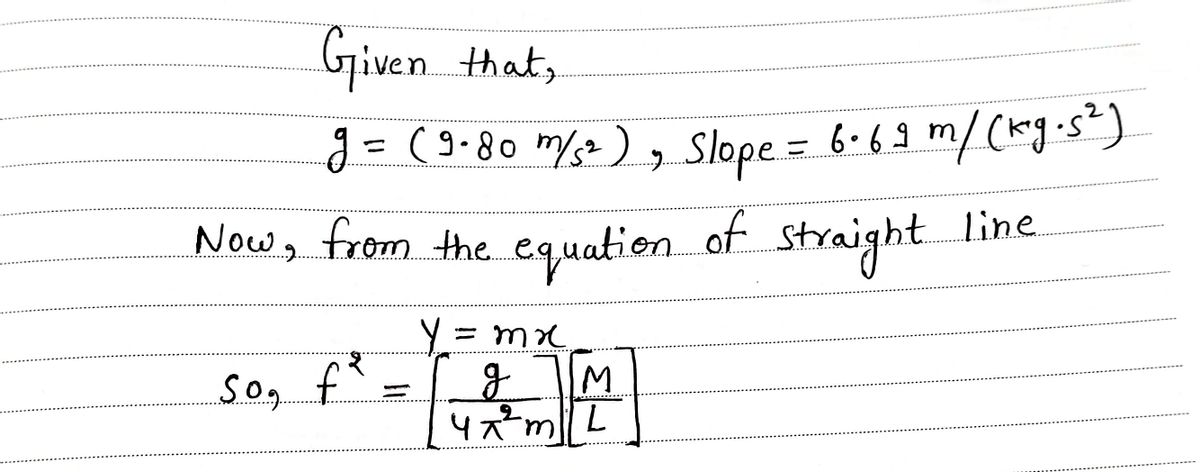 Given that,
g = (9.80 m/s²), Slope = 6.69 m/(kg.s²)
Now, from the equation of straight line
y = mx
so, f² = [g / 4π²m] [M / L]